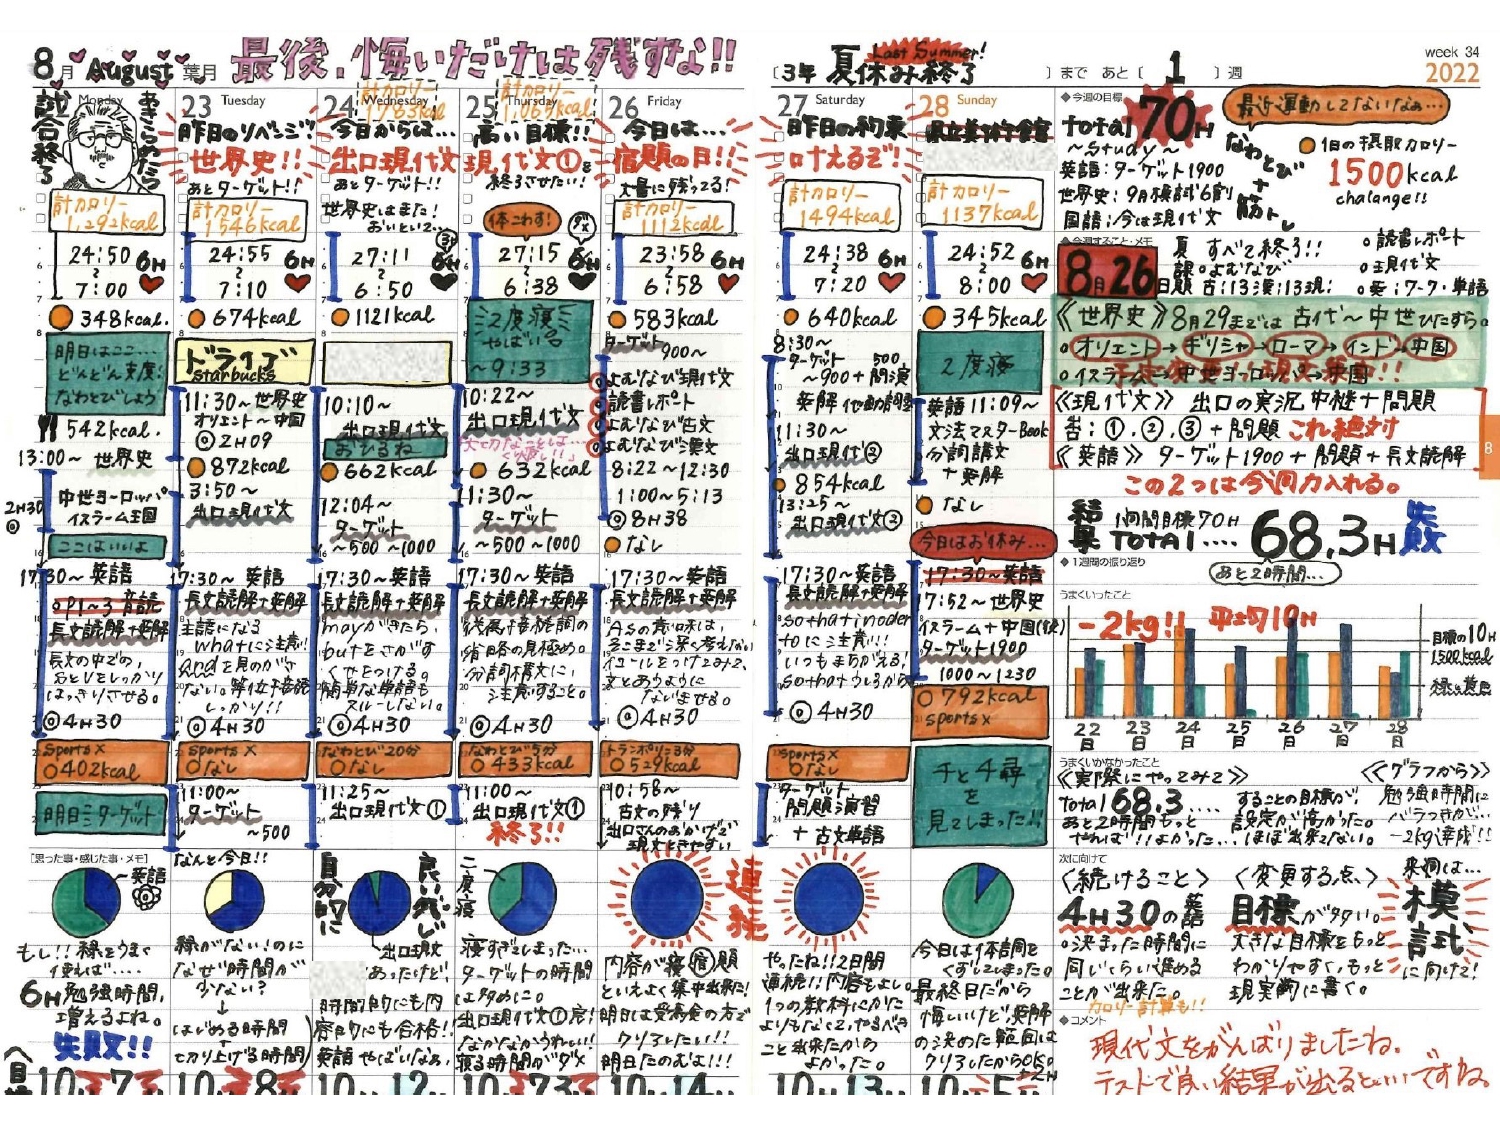 8月 August 葉月
最後、悔いだけは残すな!!
〔3年 夏休み終了 〕まで あと〔 1 〕週
Last Summer!
week 34
2022
Monday
試合終了
あきらめたら
計カロリー
1,292kcal
24:50
6H
7:00
348kcal.
明日はここ…
どんどん支度!
なわとびしよう
542kcal.
13:00~ 世界史
2H30
中世ヨーロッパ
イスラーム王国
ここはいいよ
17:30~ 英語
P1~3 音読
長文読解+要解
長文の中での、
はっきりさせる。
4H30
Sports X
402kcal
明日ミターゲット
[思った事・感じた事・メモ]
英語
もし!!緑をうまく
使えば....
6H 勉強時間,
増えるよね。
失敗!!
23 Tuesday
昨日のリベンジ!
世界史!!
あとターゲット!!
計カロリー
1546kcal
24:55
6H
7:10
674kcal
ドライブ
starbucks
11:30~世界史
オリエント~中国
2H09
872kcal
3:50~
出口現代文
17:30~ 英語
長文読解+要解
主語になる
whatに注意!
andを見のがさ
ない。等位接続
しっかり!!
4H30
sports X
なし
11:00~
ターゲット
~500
なんと今日!!
緑がない!のに
なぜ時間が
少ない?
↓
はじめる時間
切り上げる時間
24 Wednesday
計カロリー
1763kcal
今日からは…
出口現代文
あとターゲット!!
世界史はまた!
27:11
6:50
1121kcal
10:10~
出口現代文
おひるね
662kcal
12:04~
ターゲット
~500~1000
17:30~ 英語
長文読解+要解
mayがきたら,
butをさがす
くせをつける。
簡単な単語も
スルーしない。
4H30
なわとび20分
なし
11:25~
出口現代文①
自分的に
良い感じ
出口現文
あったけど!
時間的にも内
容的にも合格!!
英語やばいなあ,
25 Thursday
計カロリー
1,065kcal
高い目標!!
現代文①を
終了させたい!
体こわす!
27:15
6:38
2度寝
やばい
~9:33
10:22~
出口現代文
632kcal
11:30~
ターゲット
~500~1000
17:30~ 英語
長文読解+要解
従属接続詞の
省略の見極め。
分詞構文に,
注意すること。
4H30
なわとび5分
433kcal
11:00~
出口現代文①
終了!!
二度寝
寝すぎてしまった…
ターゲットの時間
はめに。
出口現代文①完!
なかなかうれしい!!
寝る時間がダメ
26 Friday
今日は…
宿題の日!!
大量に残ってる!
計カロリー
1112kcal
23:58
6H
6:58
583kcal
ターゲット
900~
よむなび現代文
読書レポート
よむなび古文
よむなび漢文
8:22~12:30
1:00~5:13
8H38
なし
17:30~ 英語
長文読解+要解
Asの意味は,
そこまで深く考えない
イコールをつけてみて,
文とあうように
ないませる。
4H30
トランポリン3分
529kcal
10:58~
古文の残り
出口さんのおかげで
現文ときやすい
連発
内容が宿題
といえよく集中出来た!
明日は受験の方で
クリアしたい!!
明日たのむよ!!!
27 Saturday
昨日の約束
叶えるぞ!
計カロリー
1494kcal
24:38
6H
7:20
640kcal
8:30~
ターゲット 500
~900+問演
11:30~
出口現代文②
854kcal
13:25~
出口現代文②
17:30~ 英語
長文読解+要解
so that in order
toに注意!!!
いつもまちがえる!
so thatうしろから
4H30
sports X
なし
ターゲット
問題演習
+ 古文単語
やったね!!2日間
連続!!内容もよい。
1つの教科にかた
よりもなくて,やるべき
こと出来たから
よかった。
28 Sunday
計カロリー
1137kcal
24:52
6H
8:00
345kcal
2度寝
英語11:09~
文法マスターBook
分詞構文
+ 要解
なし
今日はお休み…
17:30~英語
17:52~世界史
イスラーム+中国(後)
ターゲット1900
1000~1230
792kcal
sports X
千と千尋
を
見てしまった!!
今日は体調を
くずしてしまった。
最終日だから
悔しいけど要解
の決めた範囲は
クリアしたからOK。
◆今週の目標
total 70H
~study~
英語:ターゲット1900
世界史:9月模試6割
国語:今は現代文
最近運動してないなぁ…
なわとび
+
筋トレ
1日の摂取カロリー
1500kcal
chalange!!
◆今週すること・メモ
8月26日
夏 すべて終了!!
課 よむなび
題 古:13 漢:13 現:
読書レポート
現代文
英:ワーク・単語
《世界史》8月29までは 古代~中世ひたすら。
オリエント→ギリシャ→ローマ→インド→中国
イスラーム→中世ヨーロッパ→中国
《現代文》 出口の実況中継+問題
①.②.③+問題 これ絶対
《英語》 ターゲット1900+問題+長文読解
この2つは今週力入れる。
8
結果 1週間目標70H
TOTAl.... 68.3H 失敗
あと2時間…
◆1週間の振り返り
うまくいったこと
-2kg!! 平均10H
目標の10H
1500kcal
22日 23日 24日 25日 26日 27日 28日
うまくいかなかったこと
《実際にやってみて》
total 68.3....
あと2時間もっと
やれば!!よかった...
することの目標が!
設定が高かった。
ほぼ出来てない。
《グラフから》
勉強時間に
バラつきが…
-2kg達成!!
次に向けて
〈続けること〉
4H30の英語
決まった時間に
同じくらい進める
ことが出来た。
カロリー計算も!!
〈変更する点〉
目標が高い。
大きな目標をもっと
わかりやすく,もっと
現実的に書く。
来週は…
模試
に向けて!
◆コメント
現代文をがんばりましたね。
テストで良い結果が出るといいですね。